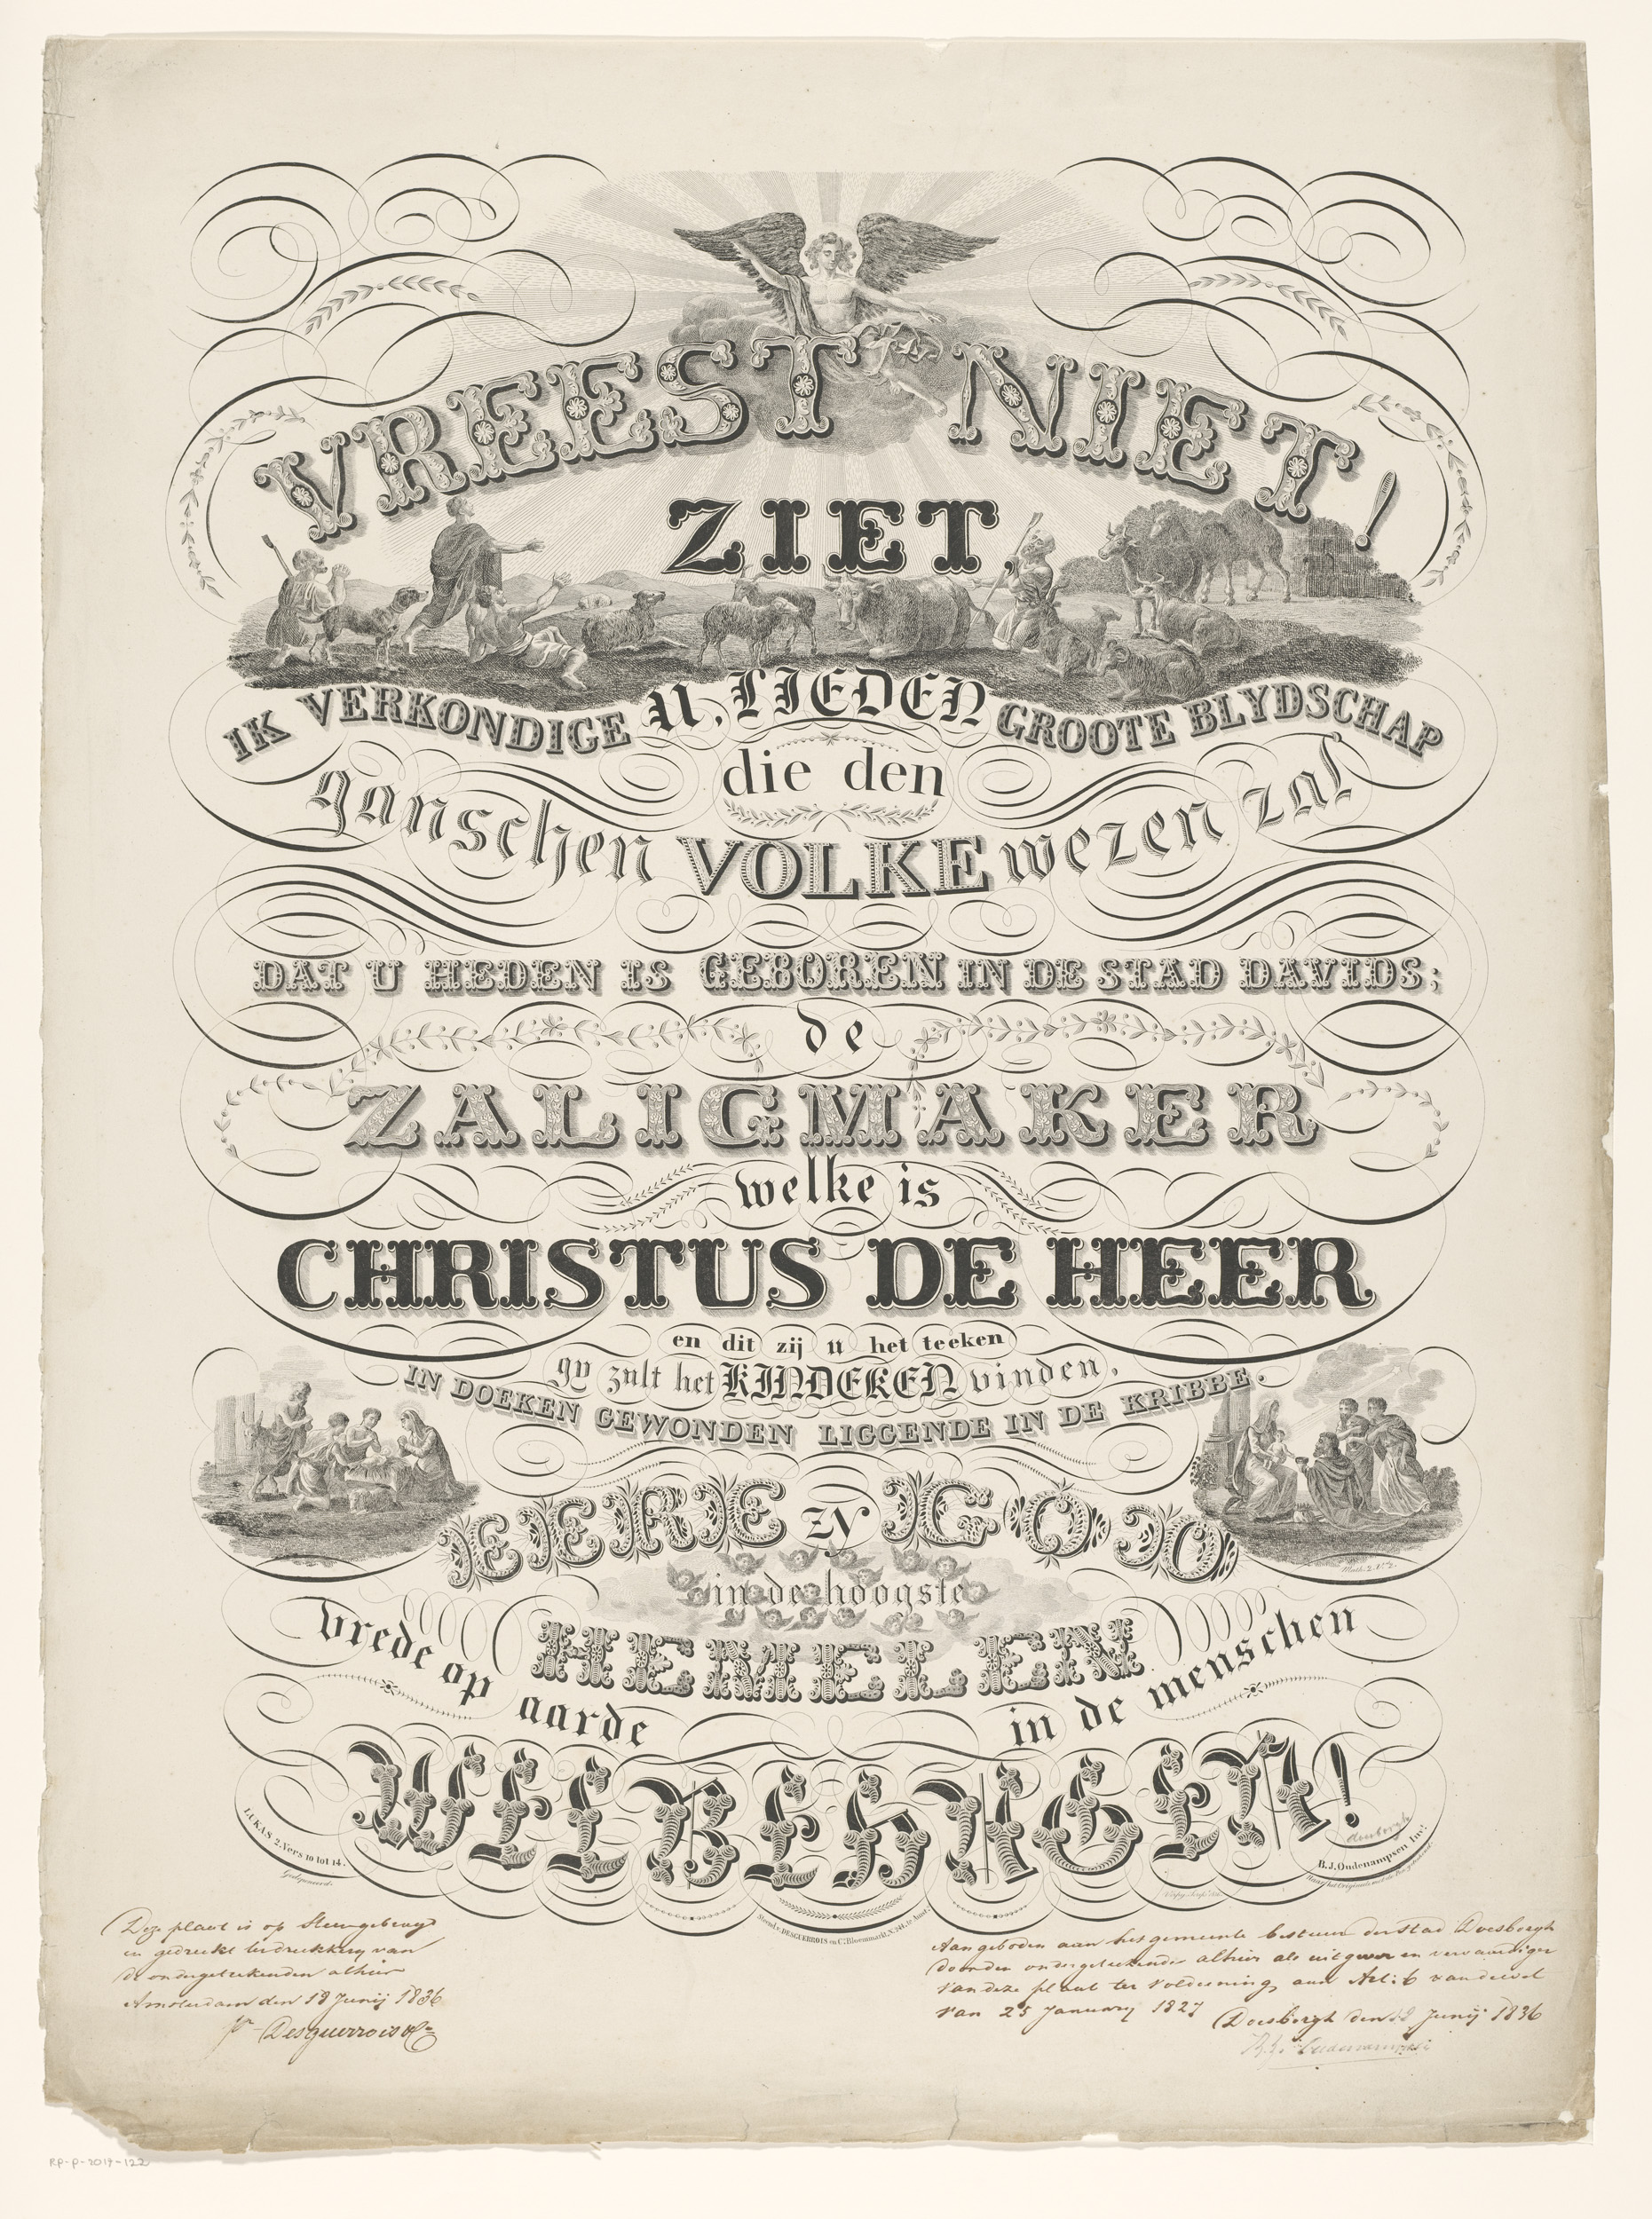 VREEST NIET!
ZIET
IK VERKONDIGE U. LIEDEN GROOTE BLYDSCHAP
die den
ganschen VOLKE wezen zal
DAT U HEDEN IS GEBOREN IN DE STAD DAVIDS;
de
ZALIGMAKER
welke is
CHRISTUS DE HEER
en dit zij u het teeken
gy zult het KINDEKEN vinden,
IN DOEKEN GEWONDEN LIGGENDE IN DE KRIBBE.
EERE zy GOD
in de hoogste
HEMELEN
vrede op aarde in de menschen
WELBEHAGEN!
LUKAS 2. Vers 10 tot 14.
B. J. Oudenampsen, Inv.
Steend. v. DESGUERROIS en Co. Bloemmarkt, N. 241, te Amst.
Deze plaat is op Steen gebragt
en gedrukt ter drukkerij van
de ondergetekenden alhier
Amsterdam den 18 Junij 1836
Desguerrois & Co
Aangeboden aan het gemeente bestuur der stad Doesborgh
door den ondergetekende alhier als uitgever en vervaardiger
van deze plaat ter voldoening aan Art: 6 van de wet
van 25 January 1827
Doesborgh den Junij 1836
B. J. Oudenampsen
RP-P-2019-122